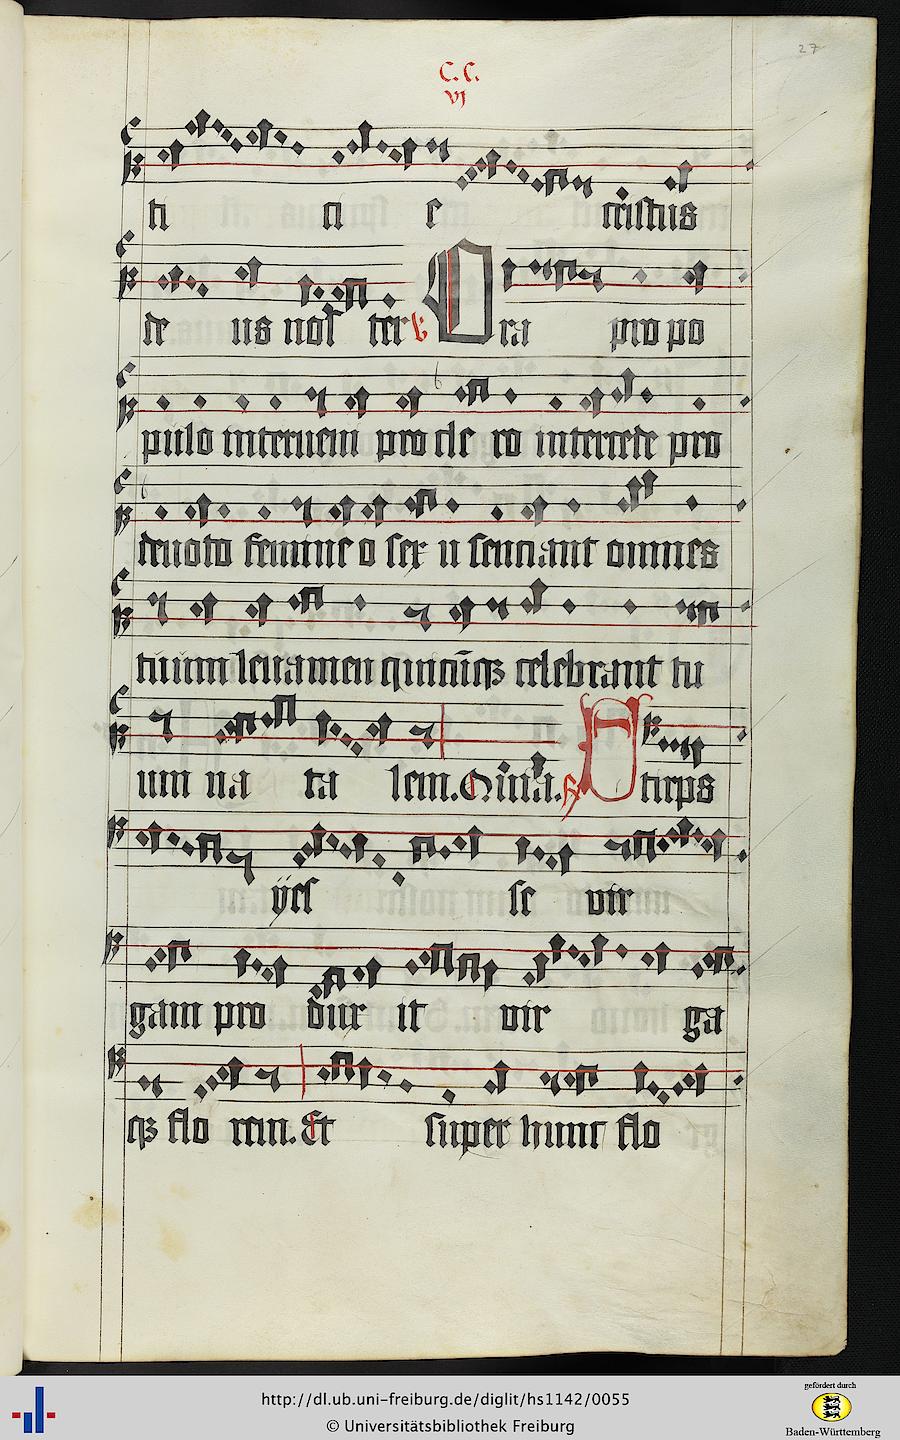 27
C.C.
VI
ti ci e cristus
de us nos ter ℣ Ora pro po
pulo interueni pro cle ro intercede pro
deuoto femineo sex u senciant omnes
tuum leuamen quicūqȝ celebrant tu
um na ta lem. ℟ Stirps
yes se vir
gam pro dux it vir ga
qȝ flo rem. Et super hunc flo
http://dl.ub.uni-freiburg.de/diglit/hs1142/0055
© Universitätsbibliothek Freiburg
gefördert durch
Baden-Württemberg